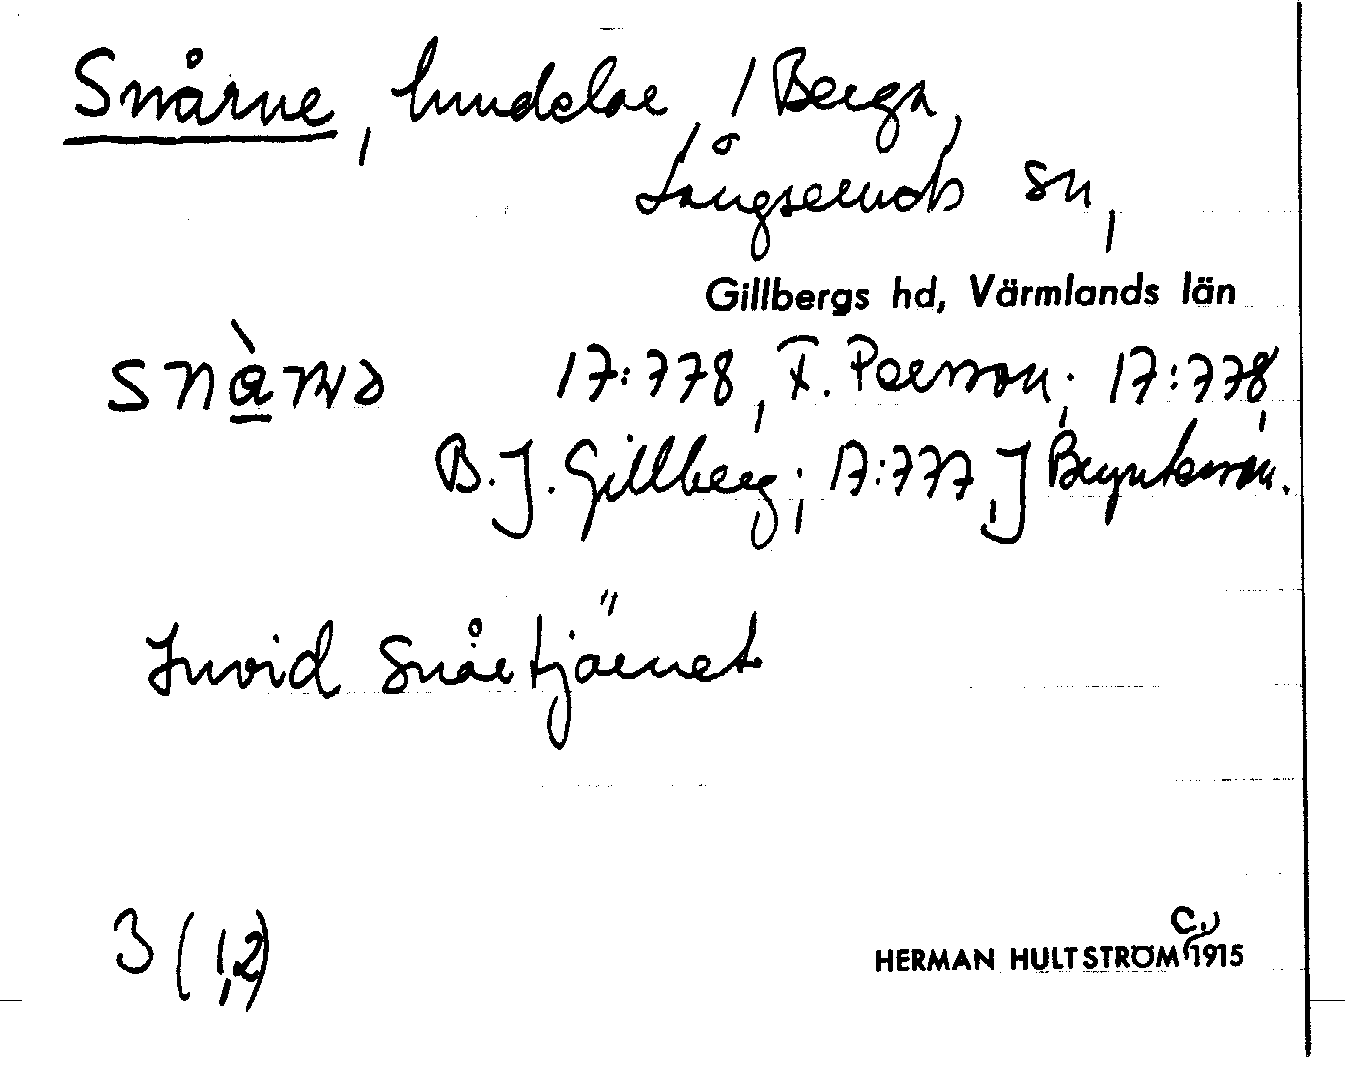 Snårne, hundelar, / Berga,
Långseruds sn,
Gillbergs hd, Värmlands län
snàrnə 17:778, F. Persson; 17:778,
B. J. Gillberg; 17:777, J Bryntesson.
Invid Snårtjärnet
3 (1,2)
C.
HERMAN HULTSTRÖM 1915